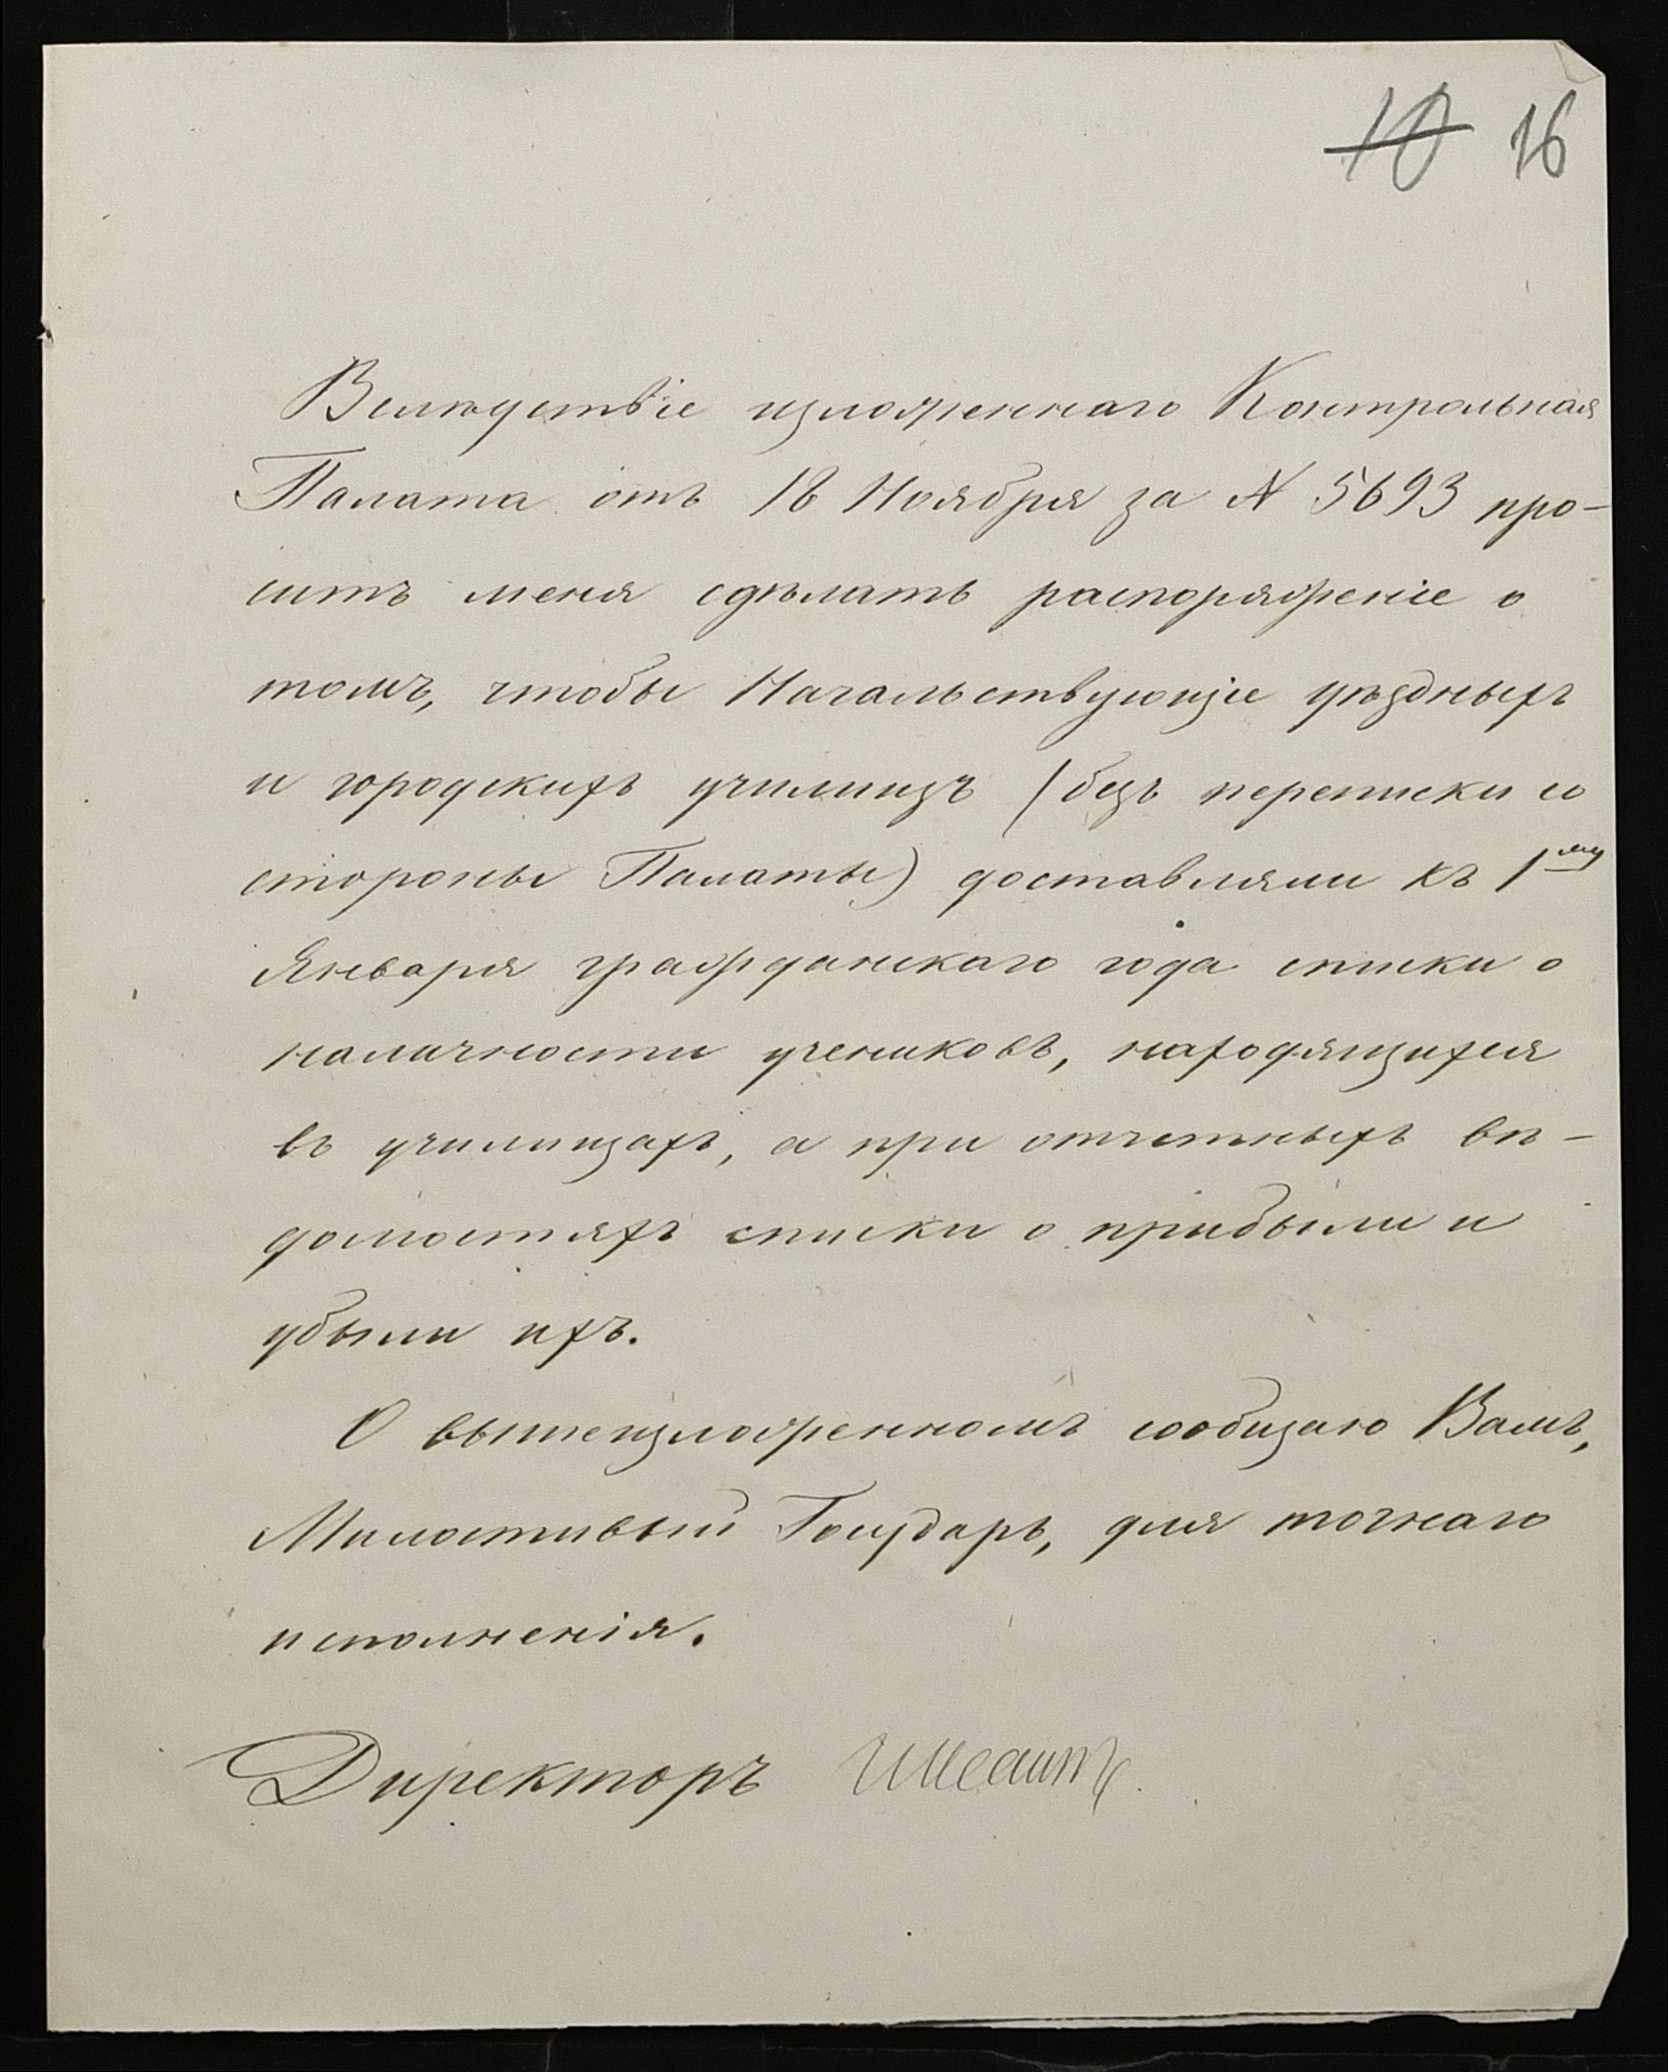 10 16
Вслѣдствіе изложеннаго Контрольная
Палата отъ 18 Ноября за № 5693 про-
ситъ меня сдѣлать распоряженіе о
томъ, чтобы Начальствующіе уѣздныхъ
и городскихъ училищъ (безъ переписки со
стороны Палаты) доставляли къ 1му
Января гражданскаго года списки о
наличности учениковъ, находящихся
въ училищахъ, а при отчетныхъ вѣ-
домостяхъ списки о прибыли и
убыли ихъ.
О вышеизложенномъ сообщаю Вамъ,
Милостивый Государь, для точнаго
исполненія.
Директоръ